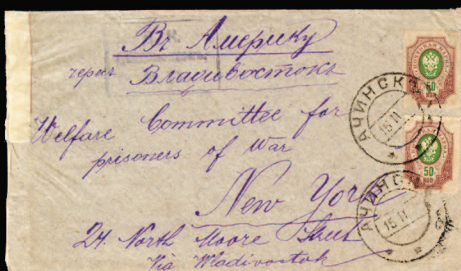 Въ Америку
черезъ Владивостокъ
Welfare Committee for
prisoners of War
New York
24 North Moore Street
Via Wladivostok
50
АЧИНСКЪ
15 11
50
АЧИНСКЪ
15 11